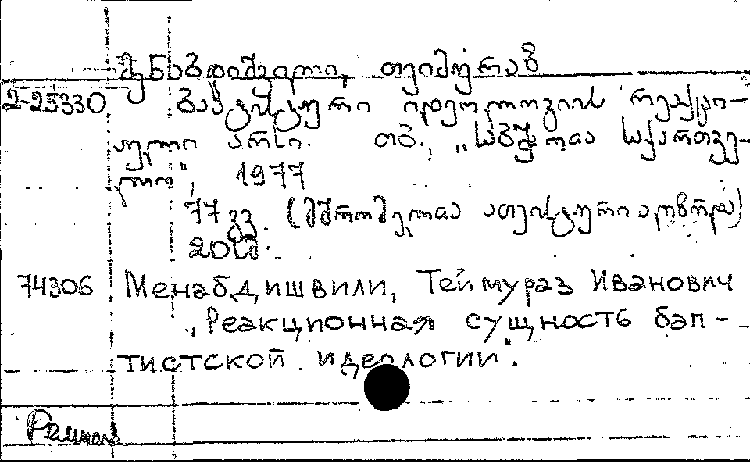 მენაბდიშვილი, თეიმურაზ
2-25330 ბაპტისტური იდეოლოგიის რეაქცი-
ული არსი. თბ., „საბჭოთა საქართვე-
ლო", 1977
77 გვ. (მშრომელთა ათეისტური აღზრდა)
20 კაპ.
74306 Менабдишвили, Теймураз Иванович
„Реакционная сущность бап-
тистской идеологии".